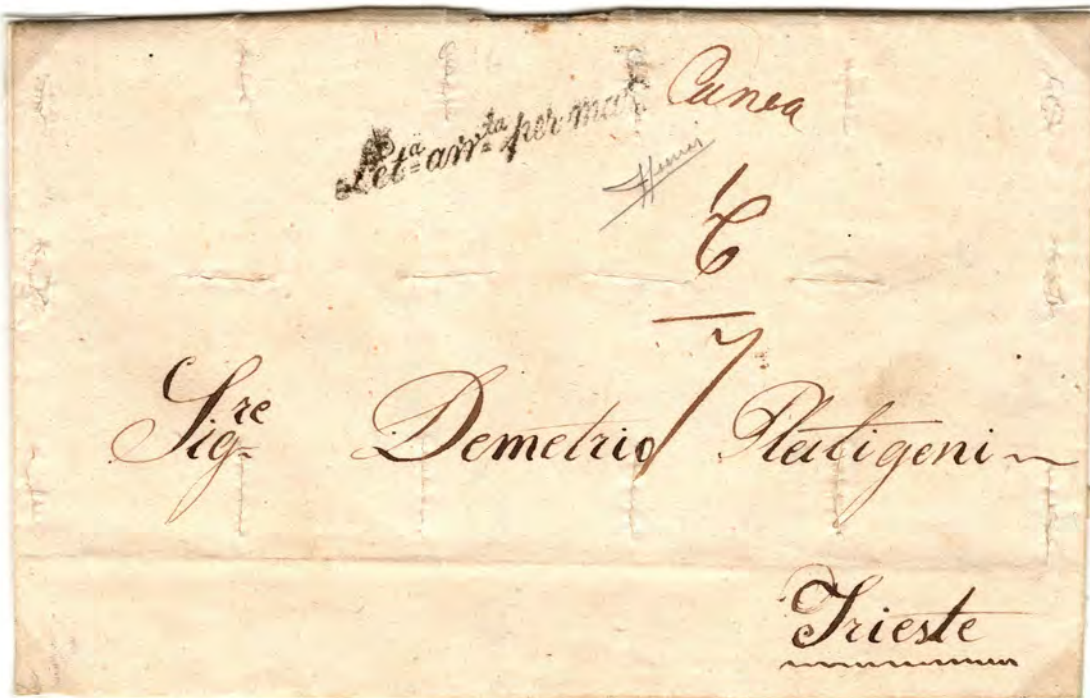 Canea
Let.ª arr.ta per mare
6
7
Sig.re Demetrio Platigeni
Trieste